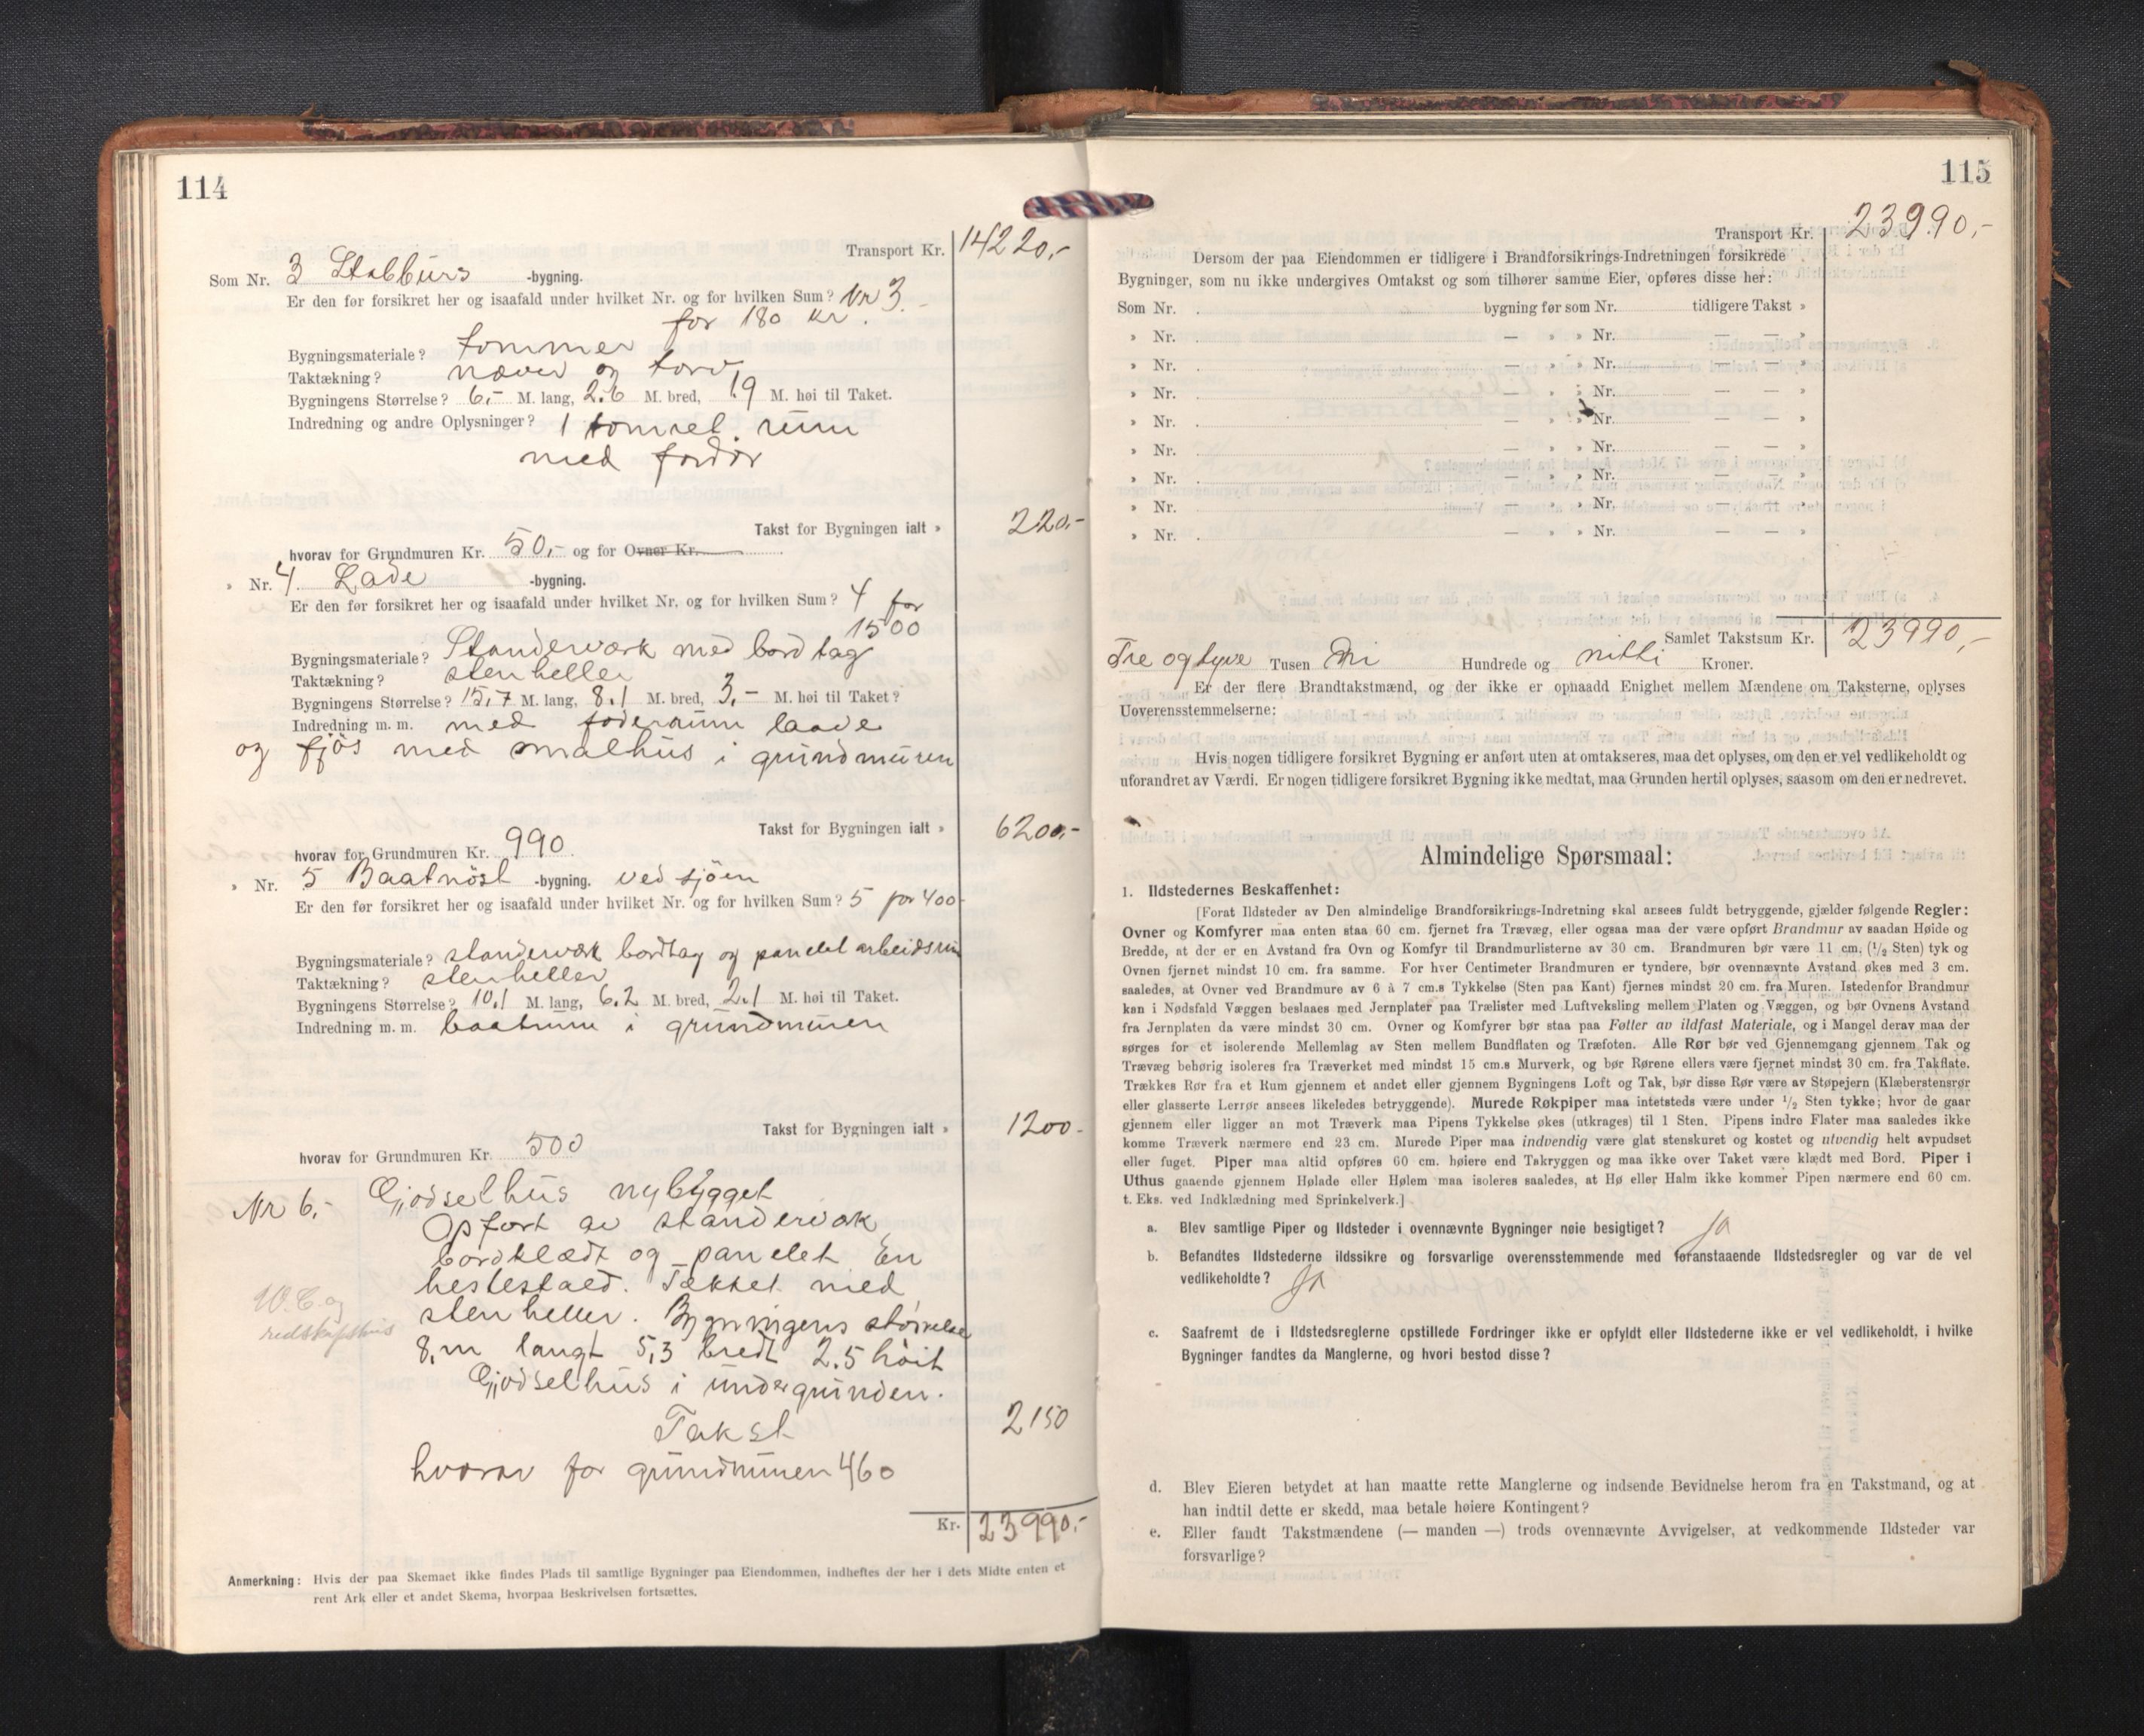 114
Transport Kr. 14220,-
Som Nr. 3 Stabburs -bygning.
Er den før forsikret her og isaafald under hvilket Nr. og for hvilken Sum? Nr 3.
for 180 kr.
Bygningsmateriale? tømmer
Taktækning? næver og torv
Bygningens Størrelse? 6,- M. lang, 2.6 M. bred, 1.9 M. høi til Taket.
Indredning og andre Oplysninger? 1 tømret rum
med fordør
Takst for Bygningen ialt » 220,-
hvorav for Grundmuren Kr. 50,- og for Ovner Kr.
» Nr. 4. Lade -bygning.
Er den før forsikret her og isaafald under hvilket Nr. og for hvilken Sum? 4 for
1500
Bygningsmateriale? Standerværk med bord tag
Taktækning? stenheller
Bygningens Størrelse? 15,7 M. lang, 8.1 M. bred, 3,- M. høi til Taket?
Indredning m. m. med foderum laade
og fjøs med smalhus i grundmuren
Takst for Bygningen ialt » 6200,-
hvorav for Grundmuren Kr. 990
» Nr. 5 Baatnöst -bygning. ved sjöen
Er den før forsikret her og isaafald under hvilket Nr. og for hvilken Sum? 5 for 400
Bygningsmateriale? standerværk bordtag og panelet arbeidsrum
Taktækning? stenheller
Bygningens Størrelse? 10.1 M. lang, 6.2 M. bred, 2.1 M. høi til Taket.
Indredning m. m. baatrum i grundmuren
Takst for Bygningen ialt » 1200-
hvorav for Grundmuren Kr. 500
Nr 6.- Gjødselhus nybygget
Opført av standerværk
bordklædt og panelet En
hestestald. Tækket med
W.C. og
redskapshus
stenheller. Bygningens störrelse
8,m langt 5,3 bredt 2.5 höit
Gjødselhus i undergrunden.
Takst 2150
hvorav for grundmuren 460
Kr. 23990,-
Anmerkning: Hvis der paa Skemaet ikke findes Plads til samtlige Bygninger paa Eiendommen, indheftes der her i dets Midte enten et
rent Ark eller et andet Skema, hvorpaa Beskrivelsen fortsættes.
115
Transport Kr. 23990,-
Dersom der paa Eiendommen er tidligere i Brandforsikrings-Indretningen forsikrede
Bygninger, som nu ikke undergives Omtakst og som tilhører samme Eier, opføres disse her:
Som Nr. bygning før som Nr. tidligere Takst »
» Nr. — » » Nr. — — »
» Nr. — » » Nr. — — »
» Nr. — » » Nr. — — »
» Nr. — » » Nr. — — »
» Nr. — » » Nr. — — »
» Nr. — » » Nr. — — »
» Nr. — » » Nr. — — »
» Nr. — » » Nr. — — »
Samlet Takstsum Kr. 23990,-
Tre og tyve Tusen Ni Hundrede og nitti Kroner.
Er der flere Brandtakstmænd, og der ikke er opnaadd Enighet mellem Mændene om Taksterne, oplyses
Uoverensstemmelserne:
Hvis nogen tidligere forsikret Bygning er anført uten at omtakseres, maa det oplyses, om den er vel vedlikeholdt og
uforandret av Værdi. Er nogen tidligere forsikret Bygning ikke medtat, maa Grunden hertil oplyses, saasom om den er nedrevet.
Almindelige Spørsmaal:
1. Ildstedernes Beskaffenhet:
[Forat Ildsteder av Den almindelige Brandforsikrings-Indretning skal ansees fuldt betryggende, gjælder følgende Regler:
Ovner og Komfyrer maa enten staa 60 cm. fjernet fra Trævæg, eller ogsaa maa der være opført Brandmur av saadan Høide og
Bredde, at der er en Avstand fra Ovn og Komfyr til Brandmurlisterne av 30 cm. Brandmuren bør være 11 cm, (1/2 Sten) tyk og
Ovnen fjernet mindst 10 cm. fra samme. For hver Centimeter Brandmuren er tyndere, bør ovennævnte Avstand økes med 3 cm.
saaledes, at Ovner ved Brandmure av 6 à 7 cm.s Tykkelse (Sten paa Kant) fjernes mindst 20 cm. fra Muren. Istedenfor Brandmur
kan i Nødsfald Væggen beslaaes med Jernplater paa Trælister med Luftveksling mellem Platen og Væggen, og bør Ovnens Avstand
fra Jernplaten da være mindst 30 cm. Ovner og Komfyrer bør staa paa Føtter av ildfast Materiale, og i Mangel derav maa der
sørges for et isolerende Mellemlag av Sten mellem Bundflaten og Træfoten. Alle Rør bør ved Gjennemgang gjennem Tak og
Trævæg behørig isoleres fra Træverket med mindst 15 cm.s Murverk, og bør Rørene ellers være fjernet mindst 30 cm. fra Takflate.
Trækkes Rør fra et Rum gjennem et andet eller gjennem Bygningens Loft og Tak, bør disse Rør være av Støpejern (Klæberstensrør
eller glasserte Lerrør ansees likeledes betryggende). Murede Røkpiper maa intetsteds være under 1/2 Sten tykke; hvor de gaar
gjennem eller ligger an mot Træverk maa Pipens Tykkelse økes (utkrages) til 1 Sten. Pipens indre Flater maa saaledes ikke
komme Træverk nærmere end 23 cm. Murede Piper maa indvendig være glat stenskuret og kostet og utvendig helt avpudset
eller fuget. Piper maa altid opføres 60 cm. høiere end Takryggen og maa ikke over Taket være klædt med Bord. Piper i
Uthus gaaende gjennem Hølade eller Hølem maa isoleres saaledes, at Hø eller Halm ikke kommer Pipen nærmere end 60 cm.
t. Eks. ved Indklædning med Sprinkelverk.]
a. Blev samtlige Piper og Ildsteder i ovennævnte Bygninger neie besigtiget? Ja
b. Befandtes Ildstederne ildssikre og forsvarlige overensstemmende med foranstaaende Ildstedsregler og var de vel
vedlikeholdte? Ja
c. Saafremt de i Ildstedsreglerne opstillede Fordringer ikke er opfyldt eller Ildstederne ikke er vel vedlikeholdt, i hvilke
Bygninger fandtes da Manglerne, og hvori bestod disse?
d. Blev Eieren betydet at han maatte rette Manglerne og indsende Bevidnelse herom fra en Takstmand, og at
han indtil dette er skedd, maa betale høiere Kontingent?
e. Eller fandt Takstmændene (— manden —) trods ovennævnte Avvigelser, at vedkommende Ildsteder var
forsvarlige?